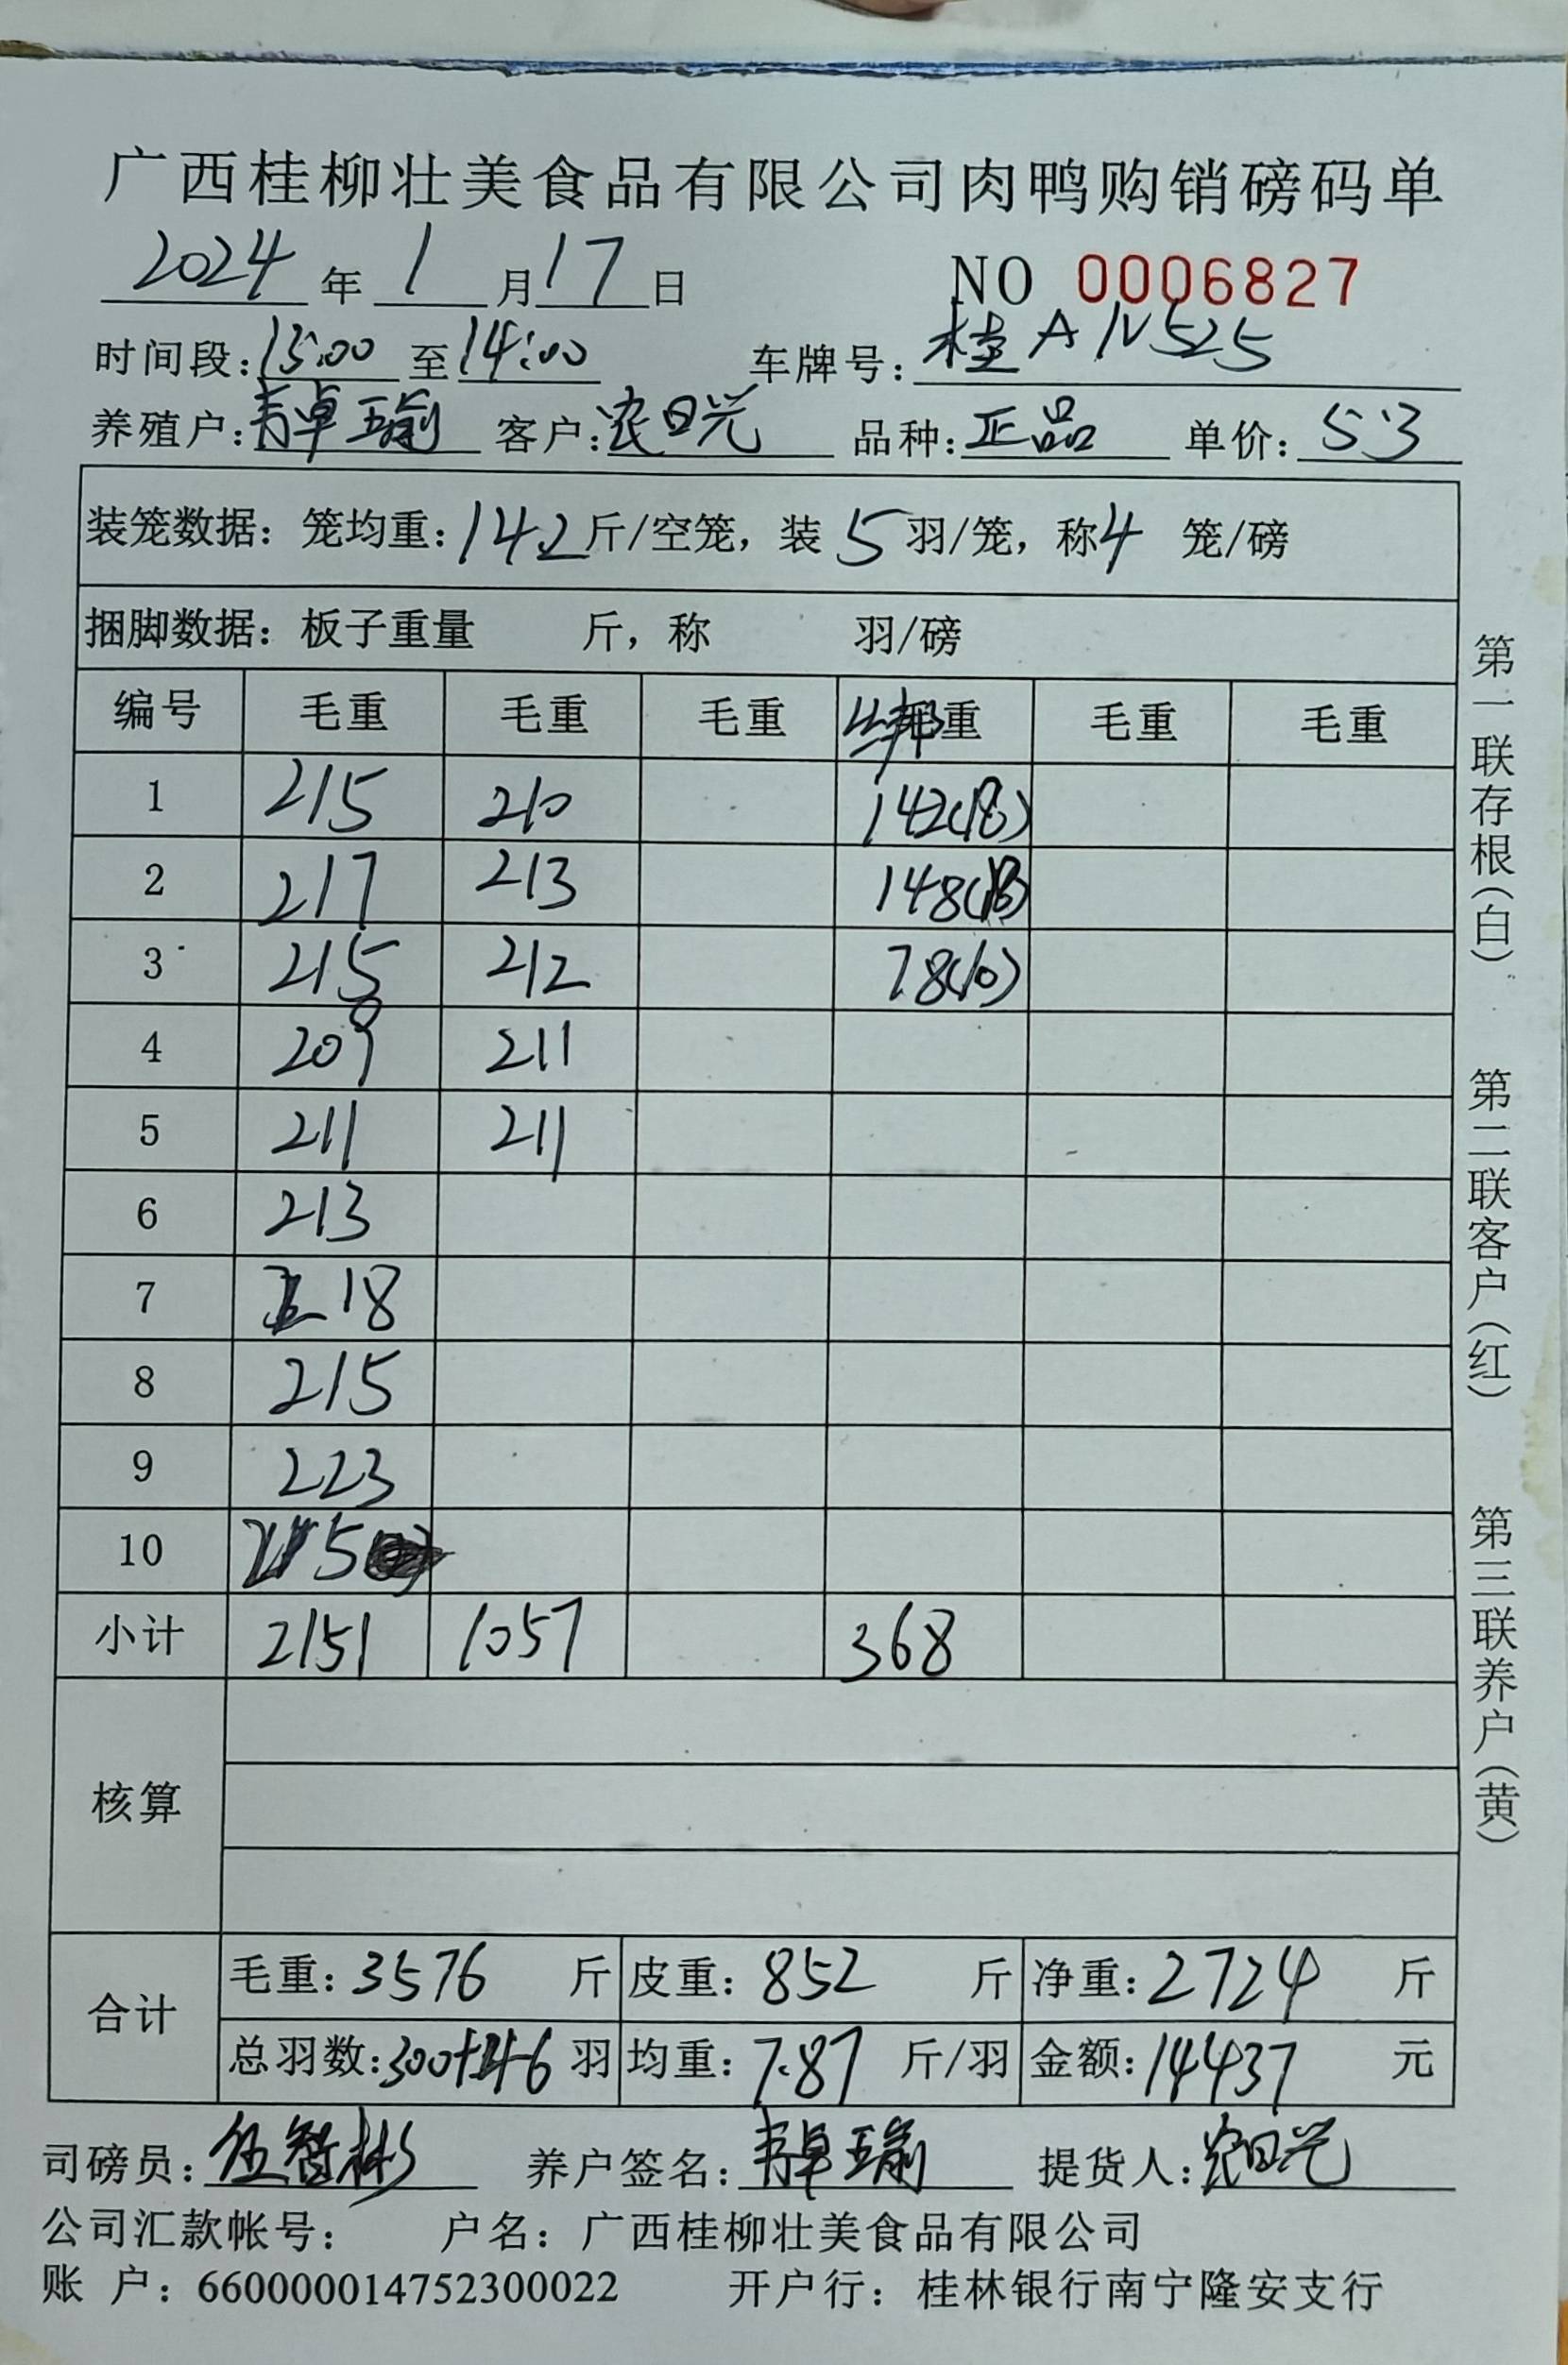 广西桂柳壮美食品有限公司肉鸭购销磅码单
2024年1月17日 NO 0006827
时间段:13:00至14:00 车牌号:桂A1V525
养殖户:卓瑜 客户:农日光 品种:正品 单价:5.3
装笼数据:笼均重:14.2斤/空笼,装5羽/笼,称4笼/磅
捆脚数据:板子重量 斤,称 羽/磅
编号 毛重 毛重 毛重 毛重 毛重 毛重
1 215 210 142(18)
2 217 213 148(18)
3 215 212 78(10)
4 209 211
5 211 211
6 213
7 218
8 215
9 223
10 215
小计 2151 1057 368
核算
合计 毛重:3576斤 皮重:852斤 净重:2724斤
总羽数:300+46羽 均重:7.87斤/羽 金额:14437元
司磅员:伍智彬 养户签名:卓瑜 提货人:农日光
公司汇款帐号: 户名:广西桂柳壮美食品有限公司
账 户:660000014752300022 开户行:桂林银行南宁隆安支行
第一联存根(白) 第二联客户(红) 第三联养户(黄)